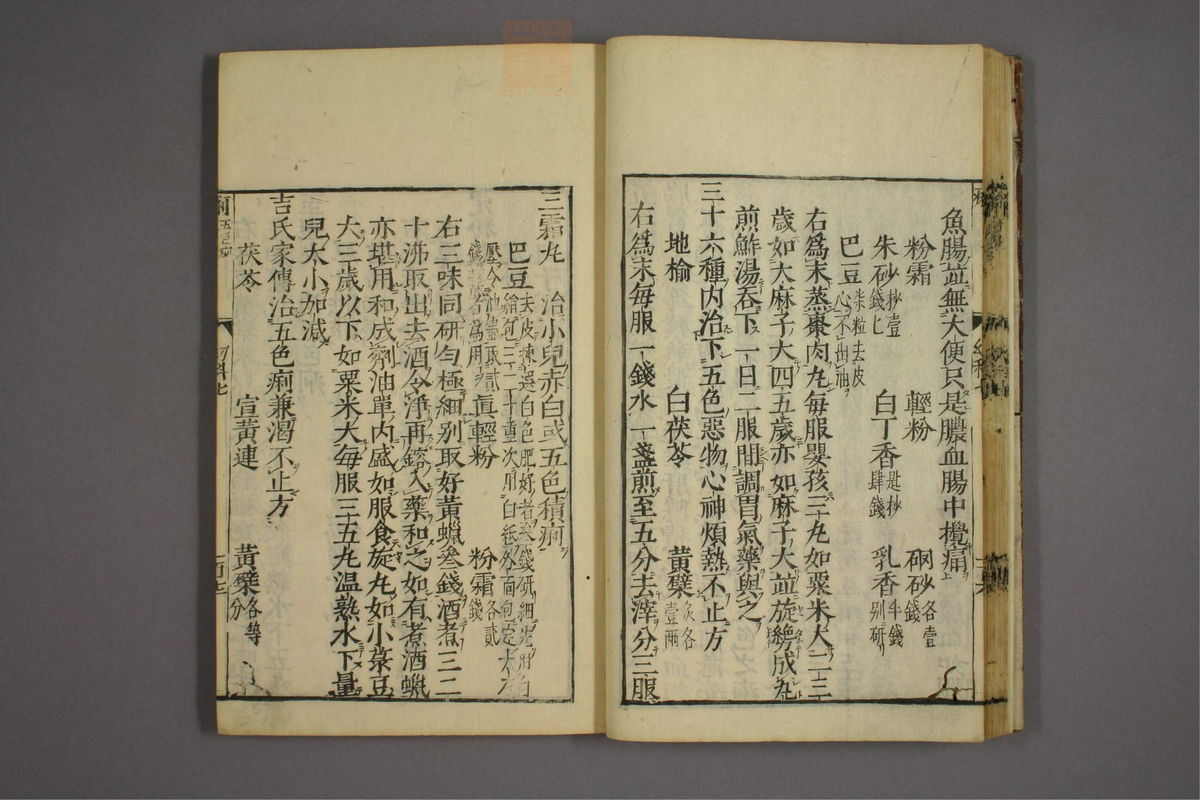 魚腸並無大便只是膿血腸中攪痛
粉霜 輕粉 硇砂各壹錢
朱砂抄壹錢匕 白丁香匙抄肆錢 乳香半錢別研
巴豆柒粒去皮心不出油
右爲末蒸棗肉丸每服嬰孩三丸如粟米大二三
歲如大麻子大四五歲亦如麻子大並旋丸
煎鮓湯吞下一日二服間調胃氣藥與之
三十六種內治下五色惡物心神煩熱不止方
地榆 白茯苓 黃蘗炙各壹兩
右爲末每服一錢水一盞煎至五分去滓分三服
三霜丸 治小兒赤白或五色積痢
巴豆去皮揀選白色肥好者叁錢研細先用白紙三二十重次用白紙外面定大
爲用 眞輕粉 粉霜各貳錢
右三味同研勻極細別取好黃蠟叁錢酒煮三二
十沸取出去酒令淨再鎔入藥和之如有煮酒蠟
亦堪用和成劑油單內盛如服食旋丸如小菉豆
大三歲以下如粟米大每服三五丸温熟水下量
兒大小加減
吉氏家傳治五色痢兼渴不止方
茯苓 宣黃連 黃蘗各等分